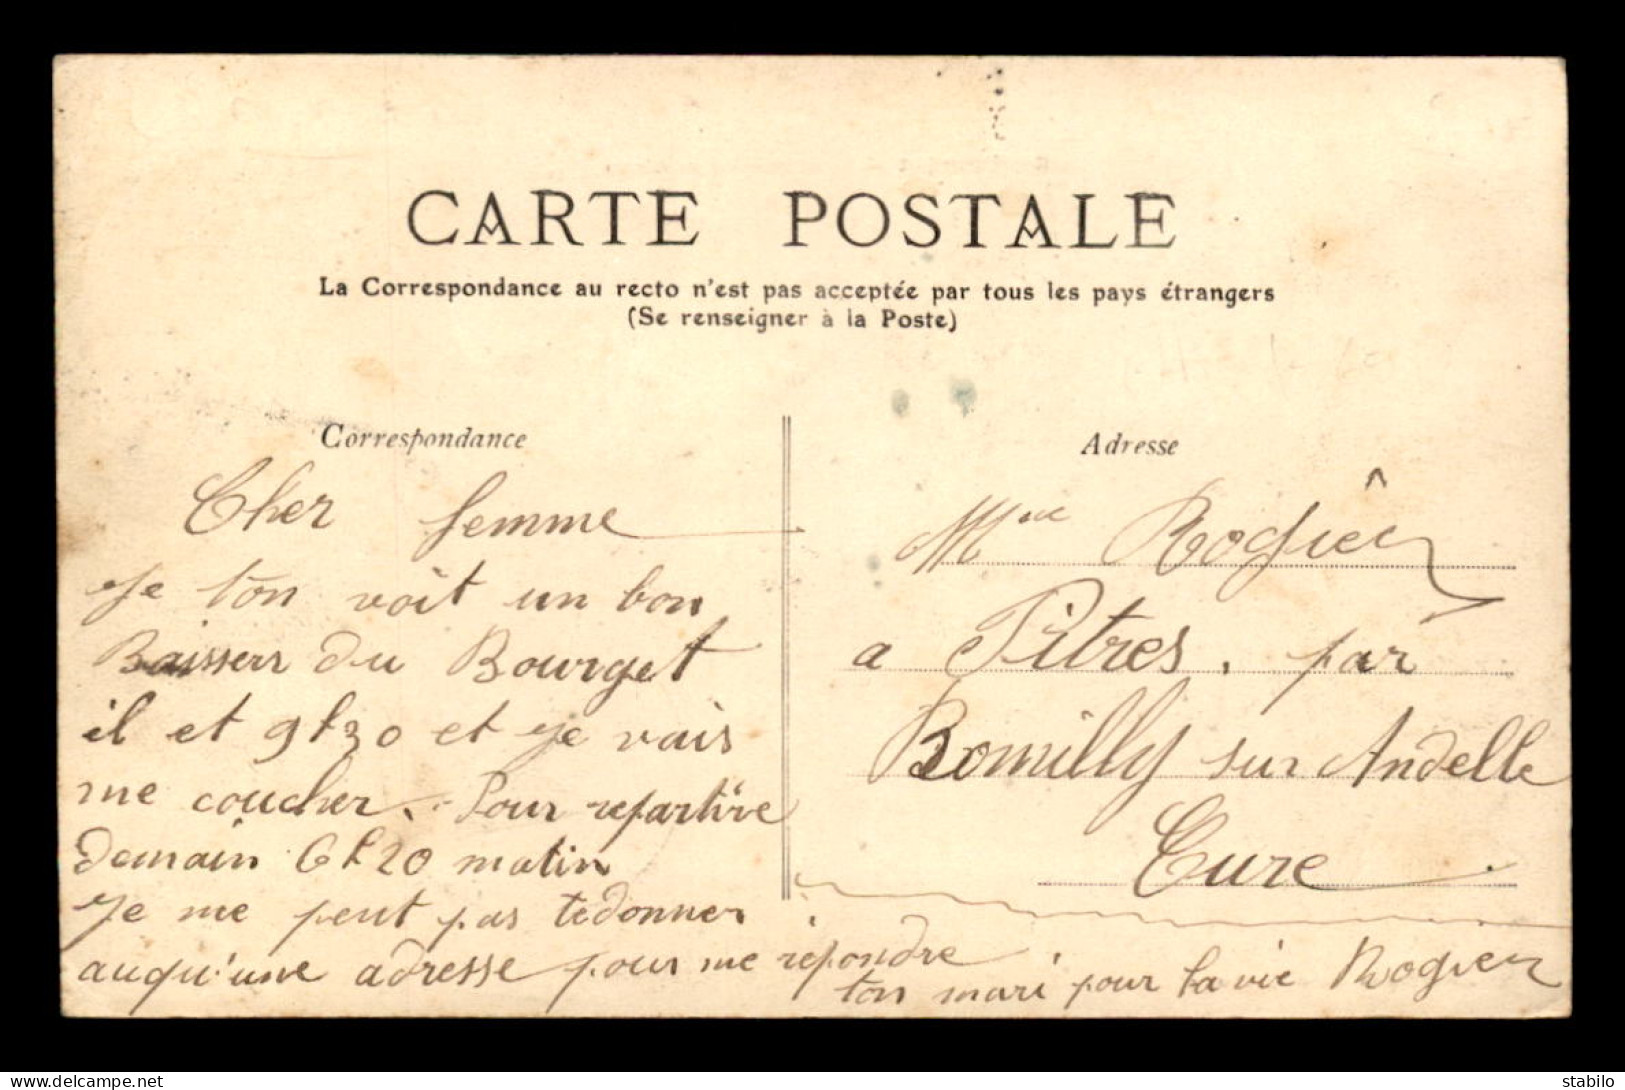 CARTE POSTALE
La Correspondance au recto n'est pas acceptée par tous les pays étrangers
(Se renseigner à la Poste)
Correspondance
Cher femme
Je ton voit un bon
Baissers du Bourget
il et 9h30 et je vais
me coucher. Pour repartire
demain 6h20 matin
Je me peut pas tedonner
auqu'une adresse pour me répondre
ton mari pour la vie Rogier
Adresse
Mme Rogier
a Pitres. par
Romilly sur Andelle
Eure
stabilo